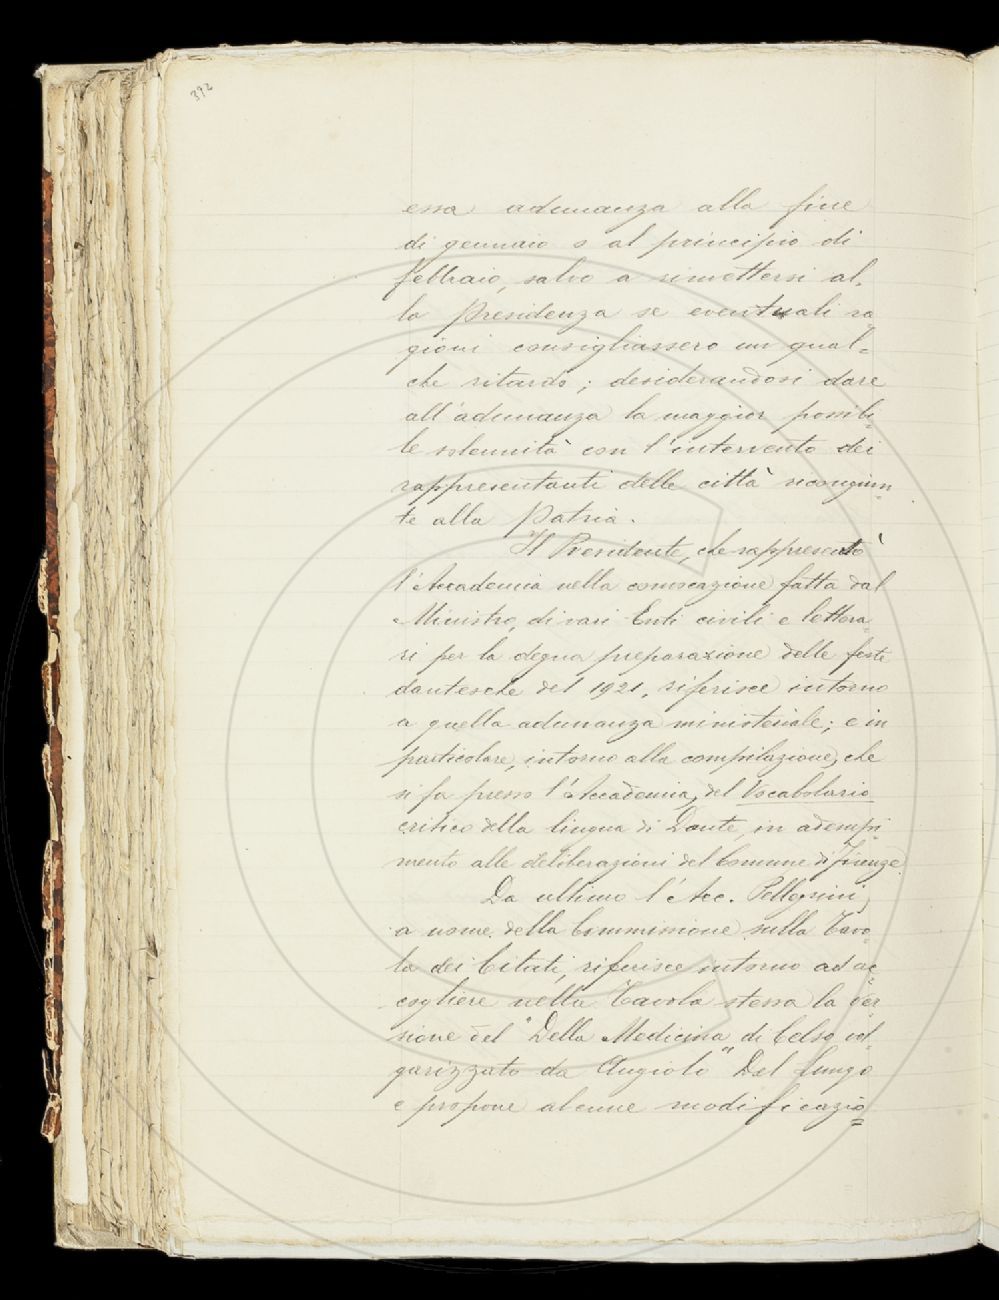 392
essa adunanza alla fine
di gennaio o al principio di
febbraio, salvo a rimettersi al-
la Presidenza se eventuali ra
gioni consigliassero un qual=
che ritardo; desiderandosi dare
all'adunanza la maggior possibi=
le solennità con l'intervento dei
rappresentanti delle città ricongiun=
te alla Patria.
Il Presidente, che rappresentò
l'Accademia nella convocazione fatta dal
Ministro, di vari Enti civili e lettera=
ri per la degna preparazione delle feste
dantesche del 1921, riferisce intorno
a quella adunanza ministeriale; e in
particolare, intorno alla compilazione, che
si fa presso l'Accademia, del Vocabolario
critico della lingua di Dante, in adempi=
mento alle deliberazioni del Comune di Firenze.
Da ultimo l'Acc. Pellegrini,
a nome della Commissione sulla Tavo=
la dei Citati, riferisce intorno ad ac=
cogliere nella Tavola stessa la ver=
sione del "Della Medicina di Celso vol=
garizzato da Angiolo" Del Lungo
e propone alcune modificazio=